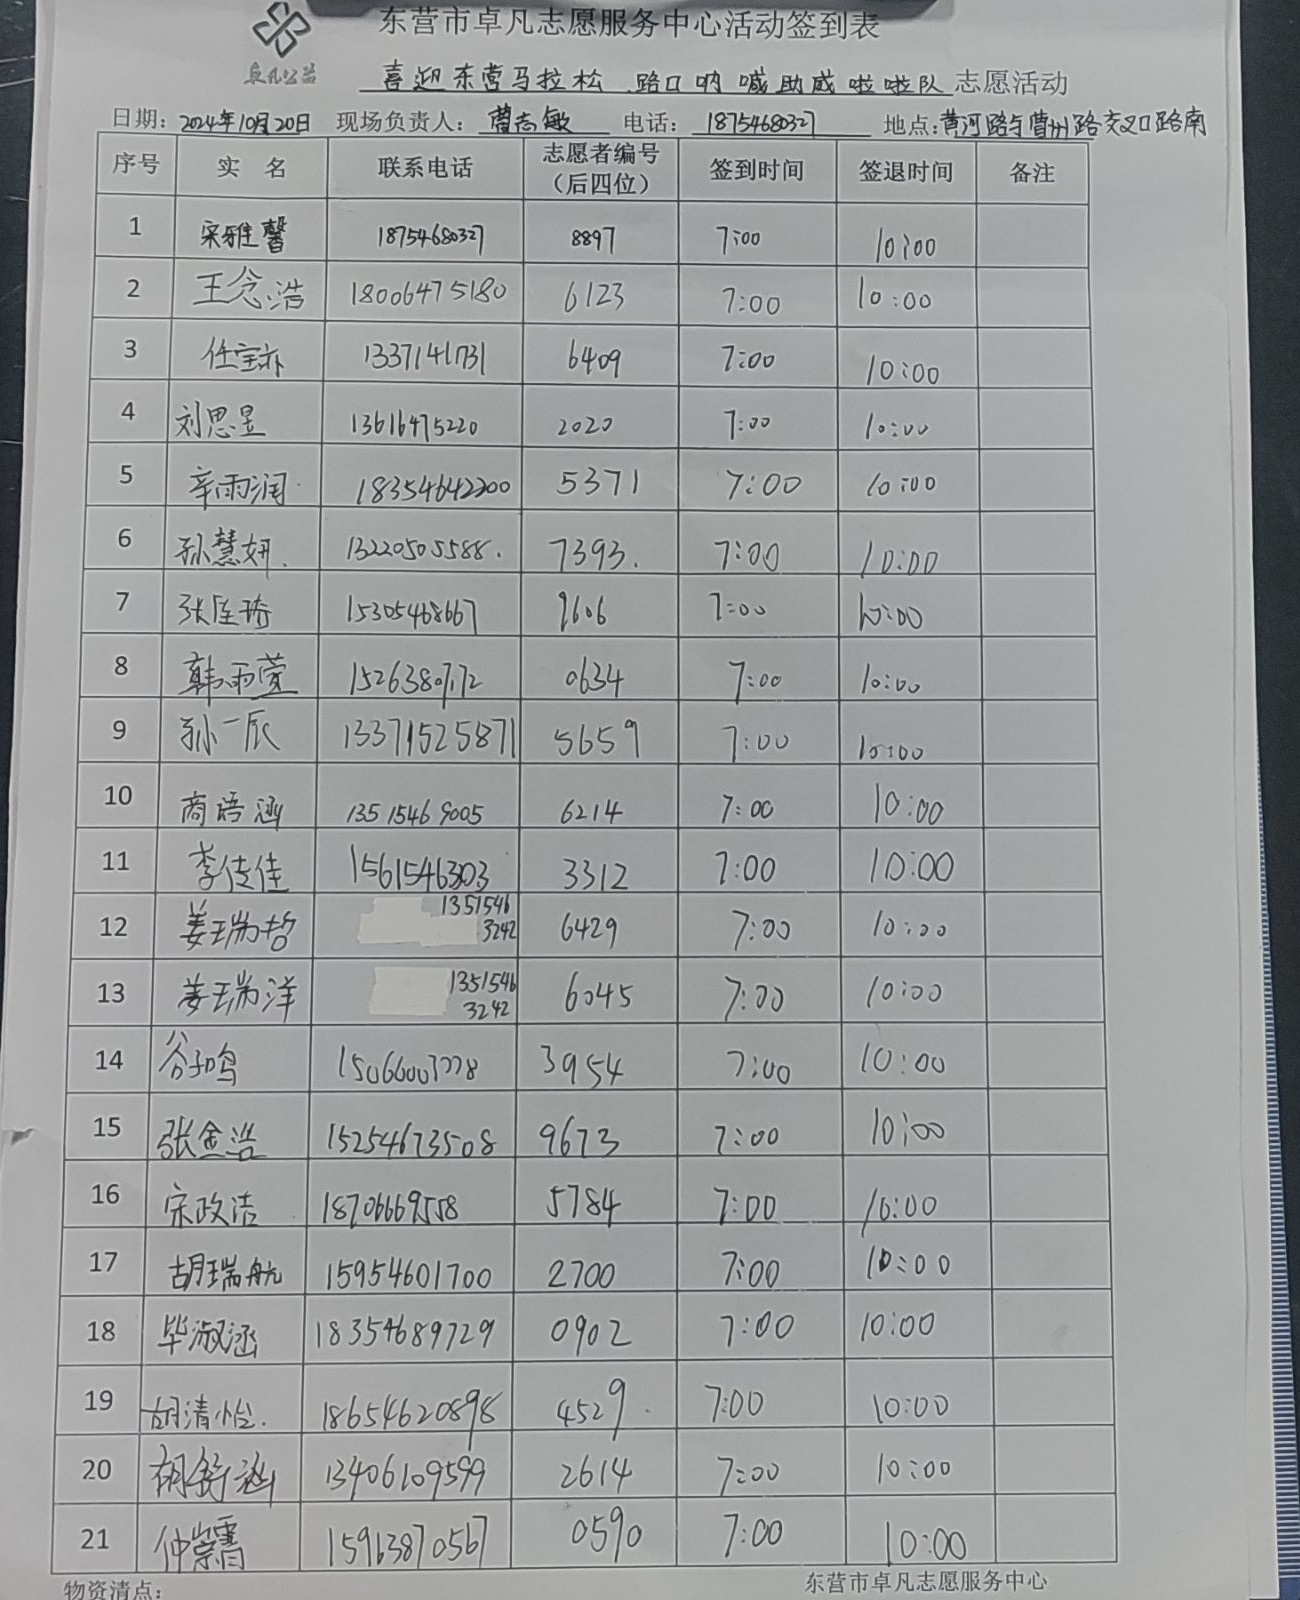 东营市卓凡志愿服务中心活动签到表
卓凡公益
喜迎东营马拉松 路口呐喊助威啦啦队 志愿活动
日期：2024年10月20日 现场负责人：曹志敏 电话：18754680327 地点：黄河路与曹州路交叉口路南
序号 实 名 联系电话 志愿者编号（后四位） 签到时间 签退时间 备注
1 宋雅馨 18754680327 8897 7:00 10:00
2 王念浩 18006475180 6123 7:00 10:00
3 任宝亦 1337141731 6409 7:00 10:00
4 刘思昱 13616475220 2020 7:00 10:00
5 辛雨润 18354642200 5371 7:00 10:00
6 孙慧妍. 13220505588. 7393. 7:00 10:00
7 张庭琦 15305468667 9606 7:00 10:00
8 韩雨萱 15263807172 0634 7:00 10:00
9 孙一辰 13371525871 5659 7:00 10:00
10 商语涵 13515469005 6214 7:00 10:00
11 李佳佳 1561546303 3312 7:00 10:00
12 姜瑞哲 1351546 3242 6429 7:00 10:00
13 姜瑞洋 1351546 3242 6045 7:00 10:00
14 谷子鸣 3954 7:00 10:00
15 张金浩 15254673508 9673 7:00 10:00
16 宋政洁 18706669558 5784 7:00 10:00
17 胡瑞航 15954601700 2700 7:00 10:00
18 毕淑涵 18354689729 0902 7:00 10:00
19 胡清怡. 18654620898 4529. 7:00 10:00
20 胡舒涵 13406109599 2614 7:00 10:00
21 仲崇霄 15963870567 0590 7:00 10:00
物资清点： 东营市卓凡志愿服务中心